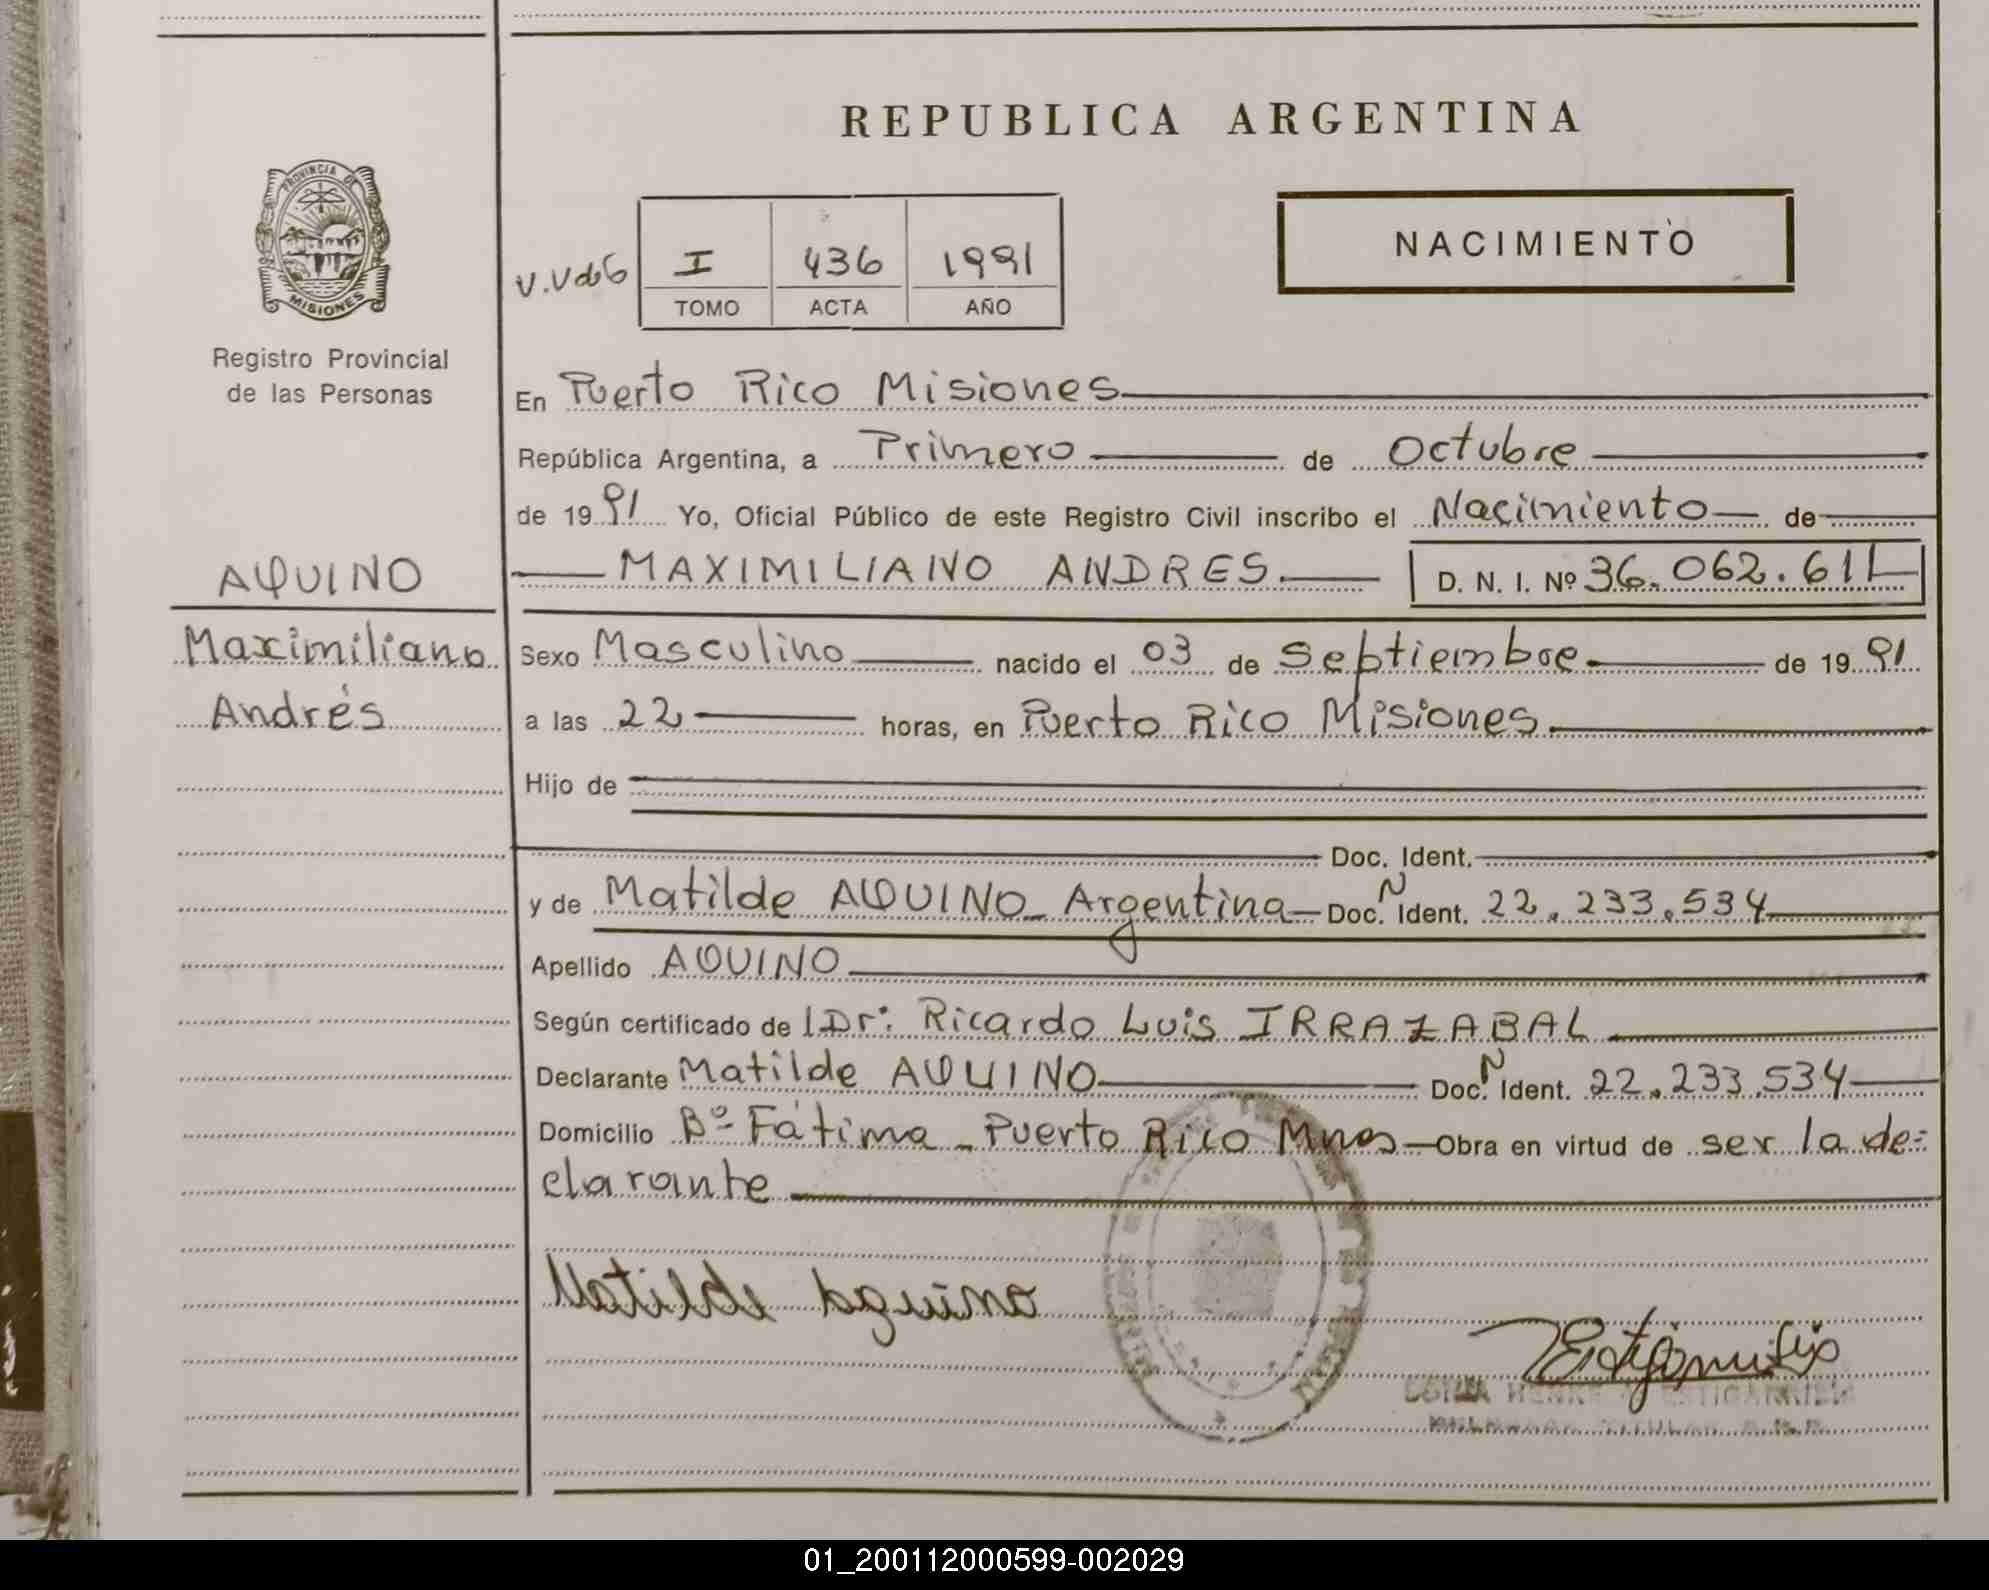 REPUBLICA ARGENTINA
PROVINCIA DE
MISIONES
Registro Provincial
de las Personas
I 436 1991
TOMO ACTA AÑO
NACIMIENTO
En Puerto Rico Misiones
República Argentina, a Primero de Octubre
de 1991 Yo, Oficial Público de este Registro Civil inscribo el Nacimiento de
AQUINO
MAXIMILIANO ANDRES. D. N. I. Nº 36.062.611
Maximiliano
Andrés
Sexo Masculino nacido el 03 de Septiembre de 1991
a las 22 horas, en Puerto Rico Misiones
Hijo de
Doc. Ident.
y de Matilde AQUINO - Argentina - Doc. N Ident. 22.233.534
Apellido AQUINO
Según certificado de l Dr: Ricardo Luis IRRAZABAL
Declarante Matilde AQUINO Doc. N Ident. 22.233.534
Domicilio Bº Fátima - Puerto Rico Mnes - Obra en virtud de ser la de=
clarante
Matilde Aquino
01_200112000599-002029